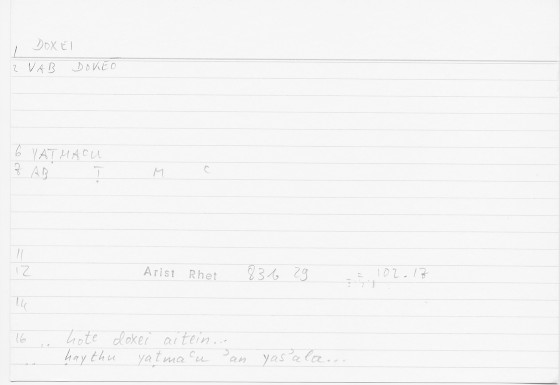 1 DOKEI
2 VAB DOKEŌ
6 YAṬMAʿU
7 AB Ṭ M ʿ
11
12 Arist Rhet 83b 29 = 102.17
14
16 .. hote dokei aitein...
.. ḥaythu yaṭmaʿu ʾan yasʾala...